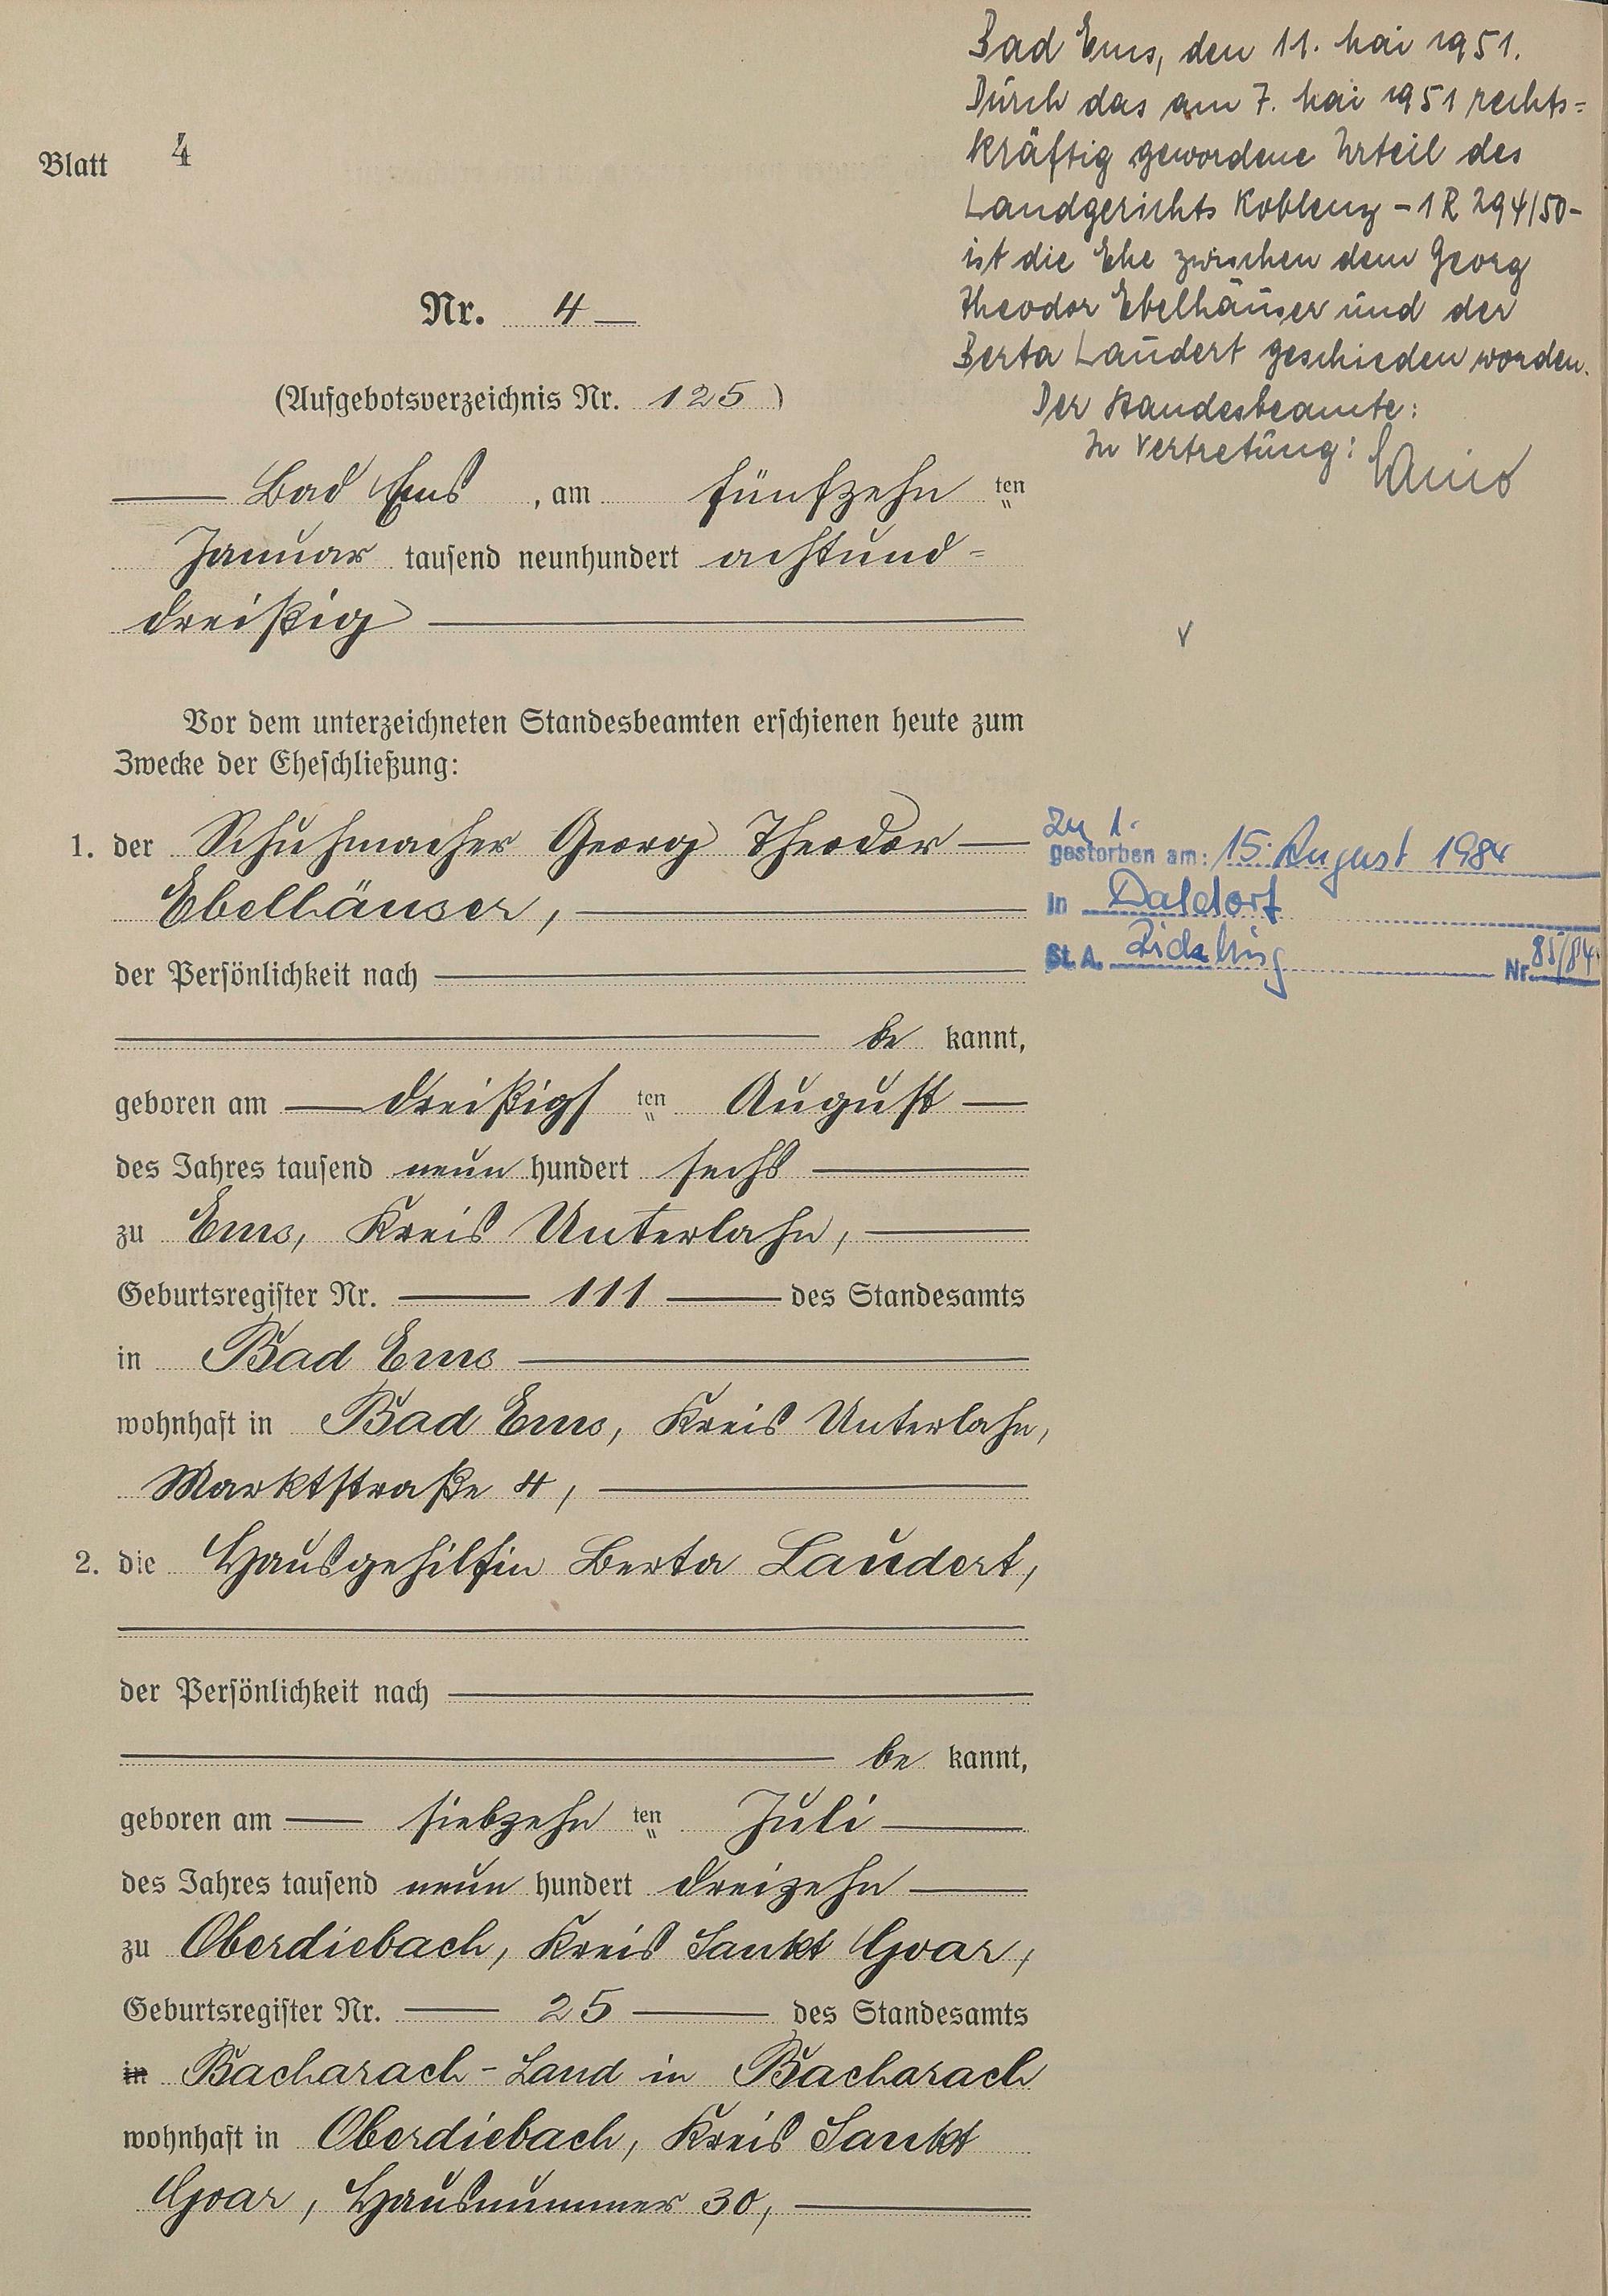 Bad Ems, den 11. Mai 1951.
Durch das am 7. Mai 1951 rechts=
kräftig gewordene Urteil des
Landgerichts Koblenz - 1 R 294/50 -
ist die Ehe zwischen dem Georg
Theodor Ebelhäuser und der
Berta Laudert geschieden worden.
Der Standesbeamte:
In Vertretung:
Blatt 4
Nr. 4
(Aufgebotsverzeichnis Nr. 125)
Bad Ems, am fünfzehn ten
Januar tausend neunhundert achtund=
dreißig
v
Vor dem unterzeichneten Standesbeamten erschienen heute zum
Zwecke der Eheschließung:
1. der Schuhmacher Georg Theodor
Ebelhäuser,
der Persönlichkeit nach
be kannt,
geboren am dreißigs ten August
des Jahres tausend neun hundert sechs
zu Ems, Kreis Unterlahn,
Geburtsregister Nr. 111 des Standesamts
in Bad Ems
wohnhaft in Bad Ems, Kreis Unterlahn,
Marktstraße 4,
Zu 1.
gestorben am: 15. August 1984
in Daldorf
St. A. Nr. 85/84
2. die Hausgehilfin Berta Laudert,
der Persönlichkeit nach
be kannt,
geboren am siebzehn ten Juli
des Jahres tausend neun hundert dreizehn
zu Oberdiebach, Kreis Sankt Goar,
Geburtsregister Nr. 25 des Standesamts
in Bacharach-Land in Bacharach
wohnhaft in Oberdiebach, Kreis Sankt
Goar, Hausnummer 30,